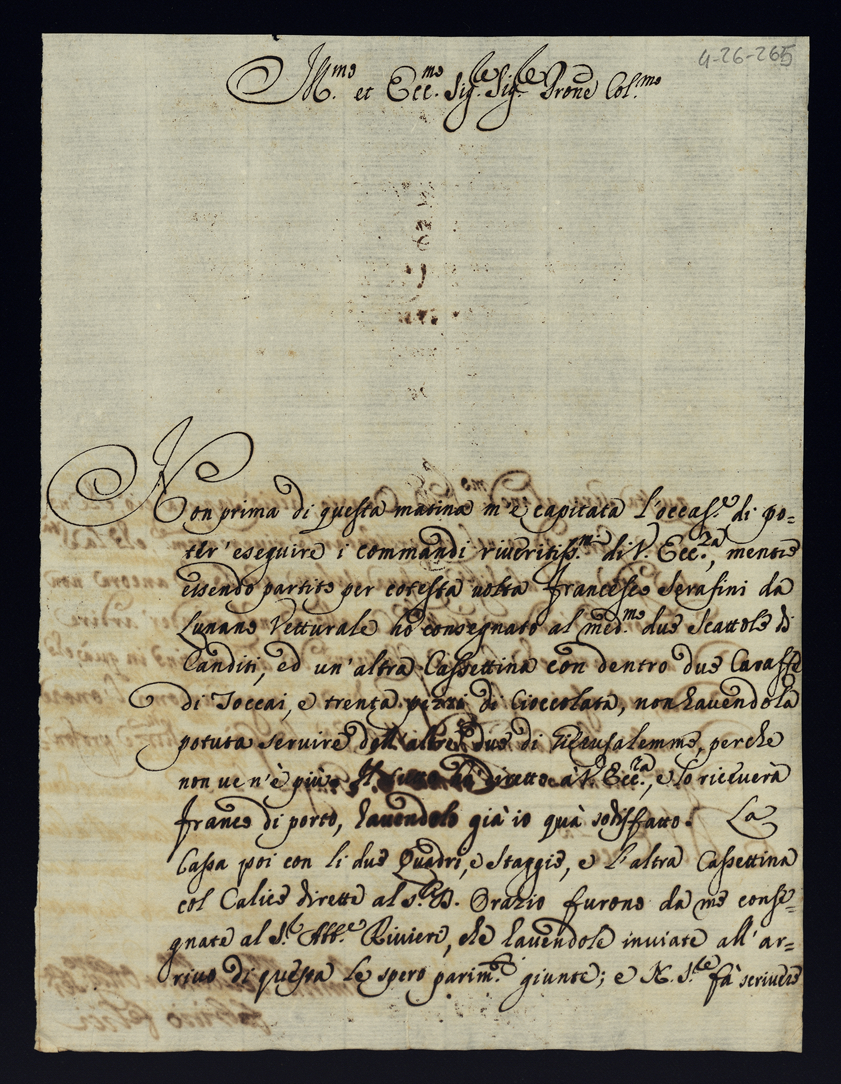 4-26-265
Ill.mo et Ecc.mo Sig.re Sig.re Prone Col.mo
Non prima di questa matina m'è capitata l'occas.e di po=
ter'eseguire i commandi riveritiss.mi di V. Ecc.za, mentre
essendo partito per cotesta volta Francesco Serafini da
Lunano Vetturale hò consegnato al med.mo due Scattole di
Canditi, ed un'altra Cassettina con dentro due Caraffe
di Toccai, e trenta pezzi di Cioccolata, non havendola
potuta servire dell'altre due di Gierusalemme, perche
non ve n'è più. Il tutto hà diretto à V. Ecc.za, e lo riceverà
franco di porto, havendolo già io quà sodisfatto. La
Cassa poi con li due Quadri, e Staggie, e l'altra Cassettina
col Calice dirette al S.r D. Orazio furono da me conse=
gnate al S.r Abb.e Riviere, che havendole inviate all'ar=
rivo di questa le spero parim.te giunte; e N. S.re fà scrivere